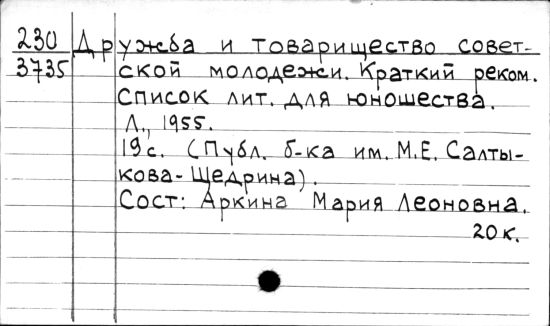 230 Дружба и товарищество совет-
3735 ской молодежи. Краткий реком.
список лит. для юношества.
Л., 1955.
19 с. (Публ. б-ка им. М.Е. Салты-
кова-Щедрина).
Сост: Аркина Мария Леоновна.
20 к.